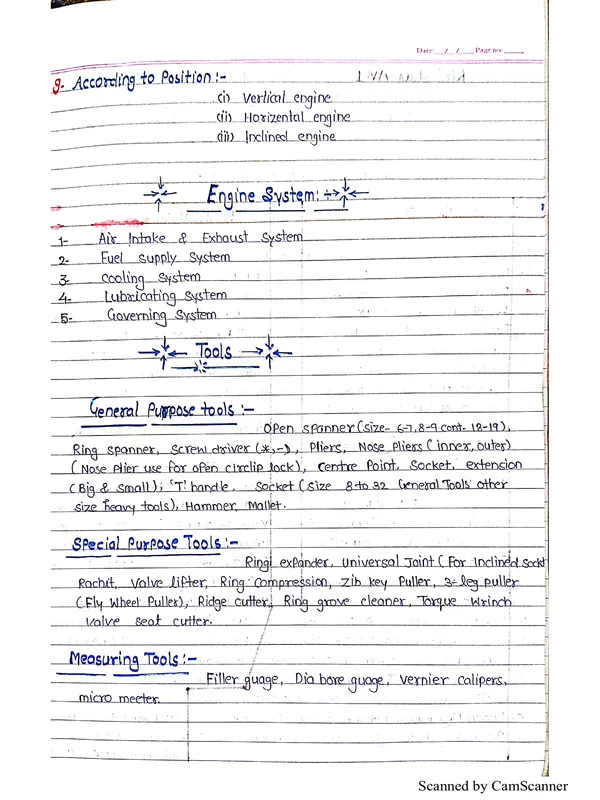 Date __/__/__ Page no: ____
9. According to Position :-
(i) Vertical engine
(ii) Horizental engine
(iii) Inclined engine
Engine System: ÷
1- Air Intake & Exhaust System
2- Fuel Supply System
3- Cooling System
4- Lubricating System
5- Governing System
Tools
General Purpose tools :-
Open spanner (size- 6-7, 8-9 cont. 18-19),
Ring spanner, Screw driver (*,-), Pliers, Nose Pliers (inner, outer)
(Nose Plier use for open circlip lock), Centre Point, Socket, extension
(Big & small); 'T' handle. Socket (Size 8 to 32 General Tools other
size heavy tools), Hammer, Mallet.
Special Purpose Tools :-
Ring expander, Universal Joint (For Inclined Sockt
Rachit, Valve lifter, Ring Compression, Zib key Puller, 3-leg puller
(Fly Wheel Puller), Ridge cutter, Ring grove cleaner, Torque Wrinch
Valve seat cutter.
Measuring Tools :-
Filler guage, Dia bore guage, Vernier calipers,
micro meeter.
Scanned by CamScanner